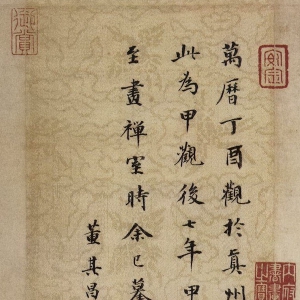 萬曆丁酉觀於真州
此為甲觀後七年甲
至畫禪室時余已摹
董其昌